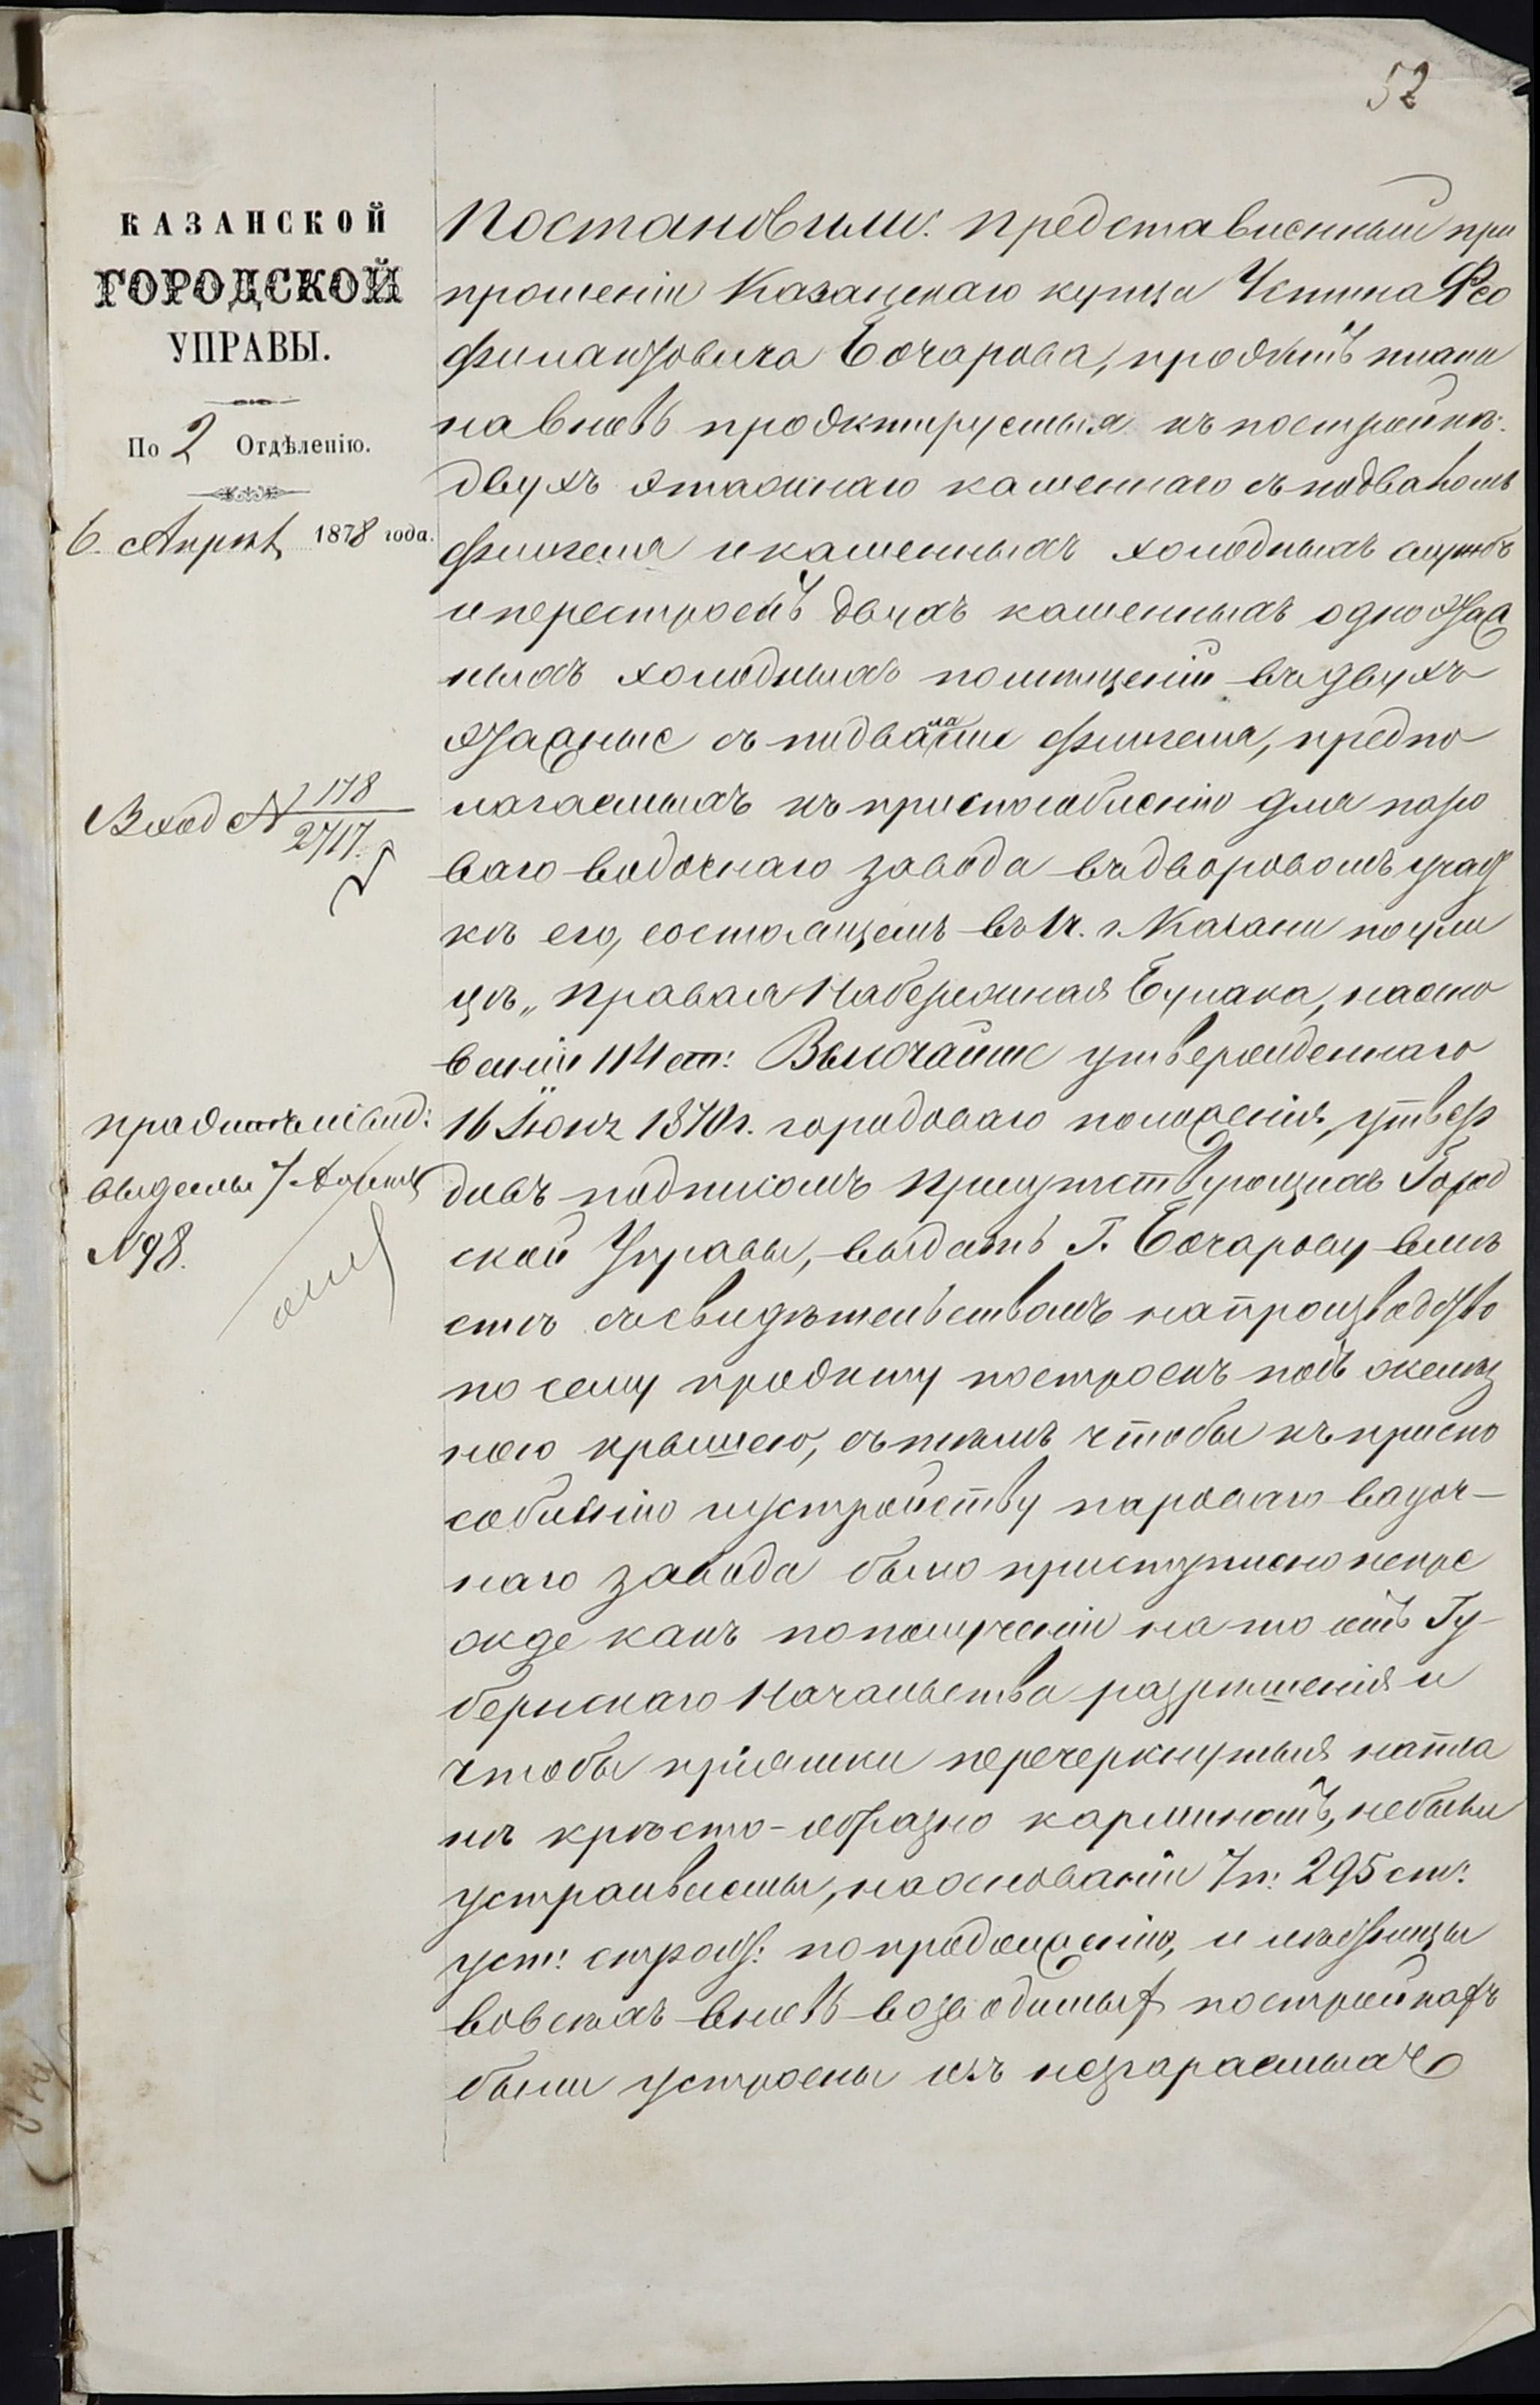 52
КАЗАНСКОЙ
ГОРОДСКОЙ
УПРАВЫ.
По 2 Отдѣленію.
6. Апрѣля 1878 года.
Вход № 178/2717.
проэктъ и свид:
выданы 7 Апрѣля
№ 98.
Постановили: представленный при
прошеніи Казанскаго купца Устина Фео
филактовича Бочарова, проэктъ плана
на вновь проэктируемыя къ постройкѣ:
двухъ этажнаго каменнаго съ подваломъ
флигеля и каменныхъ холодныхъ службъ
и перестроекъ двухъ каменныхъ одноэтаж
ныхъ холодныхъ помѣщеній въ двухъ
этажные съ подвалами флигеля, предпо
лагаемыхъ къ приспособленію для паро
ваго водочнаго завода въ дворовомъ участ
кѣ его, состоящемъ въ 1 ч. г. Казани по ули
цѣ „Правая Набережная Булака, на осно
ваніи 114 ст: Высочайше утвержденнаго
16 Іюня 1870 г. городоваго положенія, утвер
дивъ подписомъ присутствующихъ Город
ской Управы, выдать Г. Бочарову вмѣ
стѣ съ свидѣтельствомъ на производство
по сему проэкту построекъ подъ желѣз
ною крышею, съ тѣмъ чтобы къ приспо
собленію и устройству пароваго водоч-
наго завода было приступлено не пре
жде какъ по полученіи на то отъ Гу-
бернскаго Начальства разрѣшенія и
чтобы пріямки перечеркнутыя на пла
нѣ кресто-образно карминомъ, не были
устраиваемы, на основаніи 7 п: 295 ст:
уст: строит: по продолженію, и лѣстницы
во всѣхъ вновь возводимыхъ постройкахъ
были устроены изъ незгараемыхъ